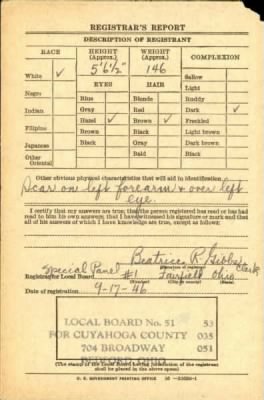 REGISTRAR'S REPORT
DESCRIPTION OF REGISTRANT
RACE
HEIGHT
(Approx.)
WEIGHT
(Approx.)
COMPLEXION
5'6½"
146
White ✓
EYES
HAIR
Sallow
Light
Negro
Blue
Blonde
Ruddy
Indian
Gray
Red
Dark ✓
Filipino
Hazel ✓
Brown ✓
Freckled
Brown
Black
Light brown
Japanese
Black
Gray
Dark brown
Other
Oriental
Bald
Black
Other obvious physical characteristics that will aid in identification
Scar on left forearm & over left
eye.
I certify that my answers are true; that the person registered has read or has had
read to him his own answers; that I have witnessed his signature or mark and that
all of his answers of which I have knowledge are true, except as follows:
Beatrice R. Gibbs
Clerk
Special Panel
(Signature of registrar)
Registrar for Local Board #1 Fairfield Ohio
(Number) (City or county) (State)
Date of registration 9-17-46
LOCAL BOARD No. 51 53
FOR CUYAHOGA COUNTY 035
704 BROADWAY 051
BEDFORD, OHIO
(The stamp of the Local Board having jurisdiction of the registrant
shall be placed in the above space)
U. S. GOVERNMENT PRINTING OFFICE